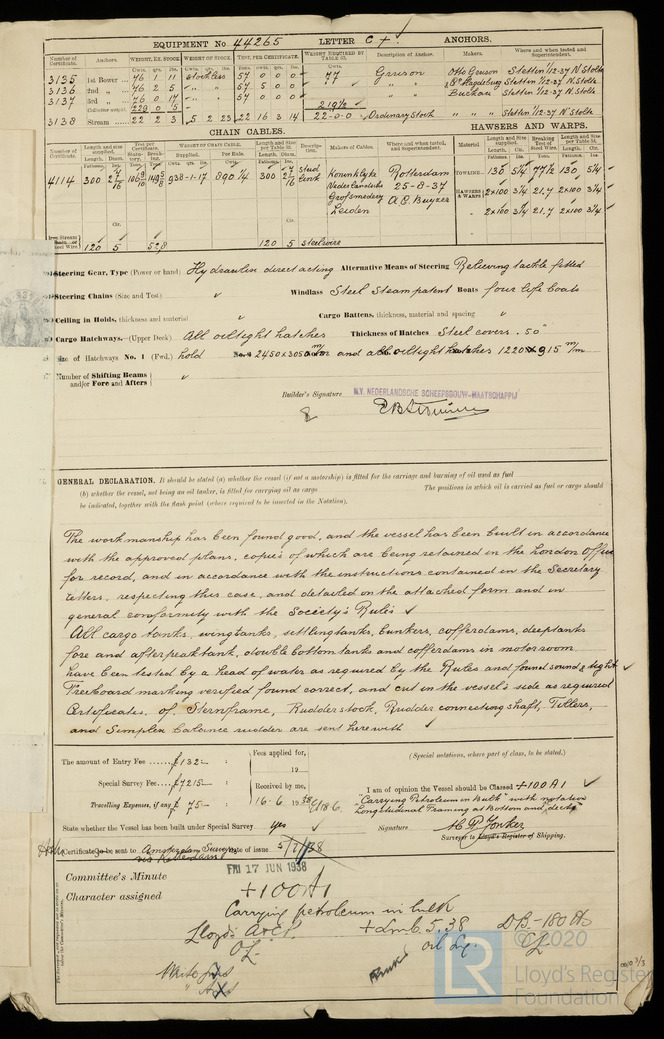 EQUIPMENT No 44265 LETTER C + . ANCHORS.
Number of Certificate. Anchors. WEIGHT, EX. STOCK. WEIGHT OF STOCK. TEST, PER CERTIFICATE. WEIGHT REQUIRED BY TABLE 53. Description of Anchor. Makers. Where and when tested and Superintendent.
3135 1st Bower 76 1 11 Stockless 57 0 0 0 77 Gruson Otto Gruson Stettin 1/12-37 N Stolte
3136 2nd " 76 2 5 " " 57 5 0 0 " " Magdeburg Stettin 1/12-37 N. Stolte
3137 3rd " 76 0 17 " " 57 0 0 0 " " Buckau Stettin 1/12-37 N. Stolte
Collective weight 229 0 5 219½
3138 Stream 22 2 3 5 2 23 22 16 3 14 22-0-0 Ordinary Stock " " " Stettin 1/12-37 N Stolte
CHAIN CABLES. HAWSERS AND WARPS.
Number of Certificate. Length and size supplied. Test per Certificate. WEIGHT OF CHAIN CABLE. Length and size per Table 53. Description. Makers of Cables. Where and when tested, and Superintendent. Material Length and Size supplied. Breaking Test of Steel Wire. Length and Size per Table 53.
4114 300 2 7/16 938-1-17 890¼ 300 2 7/16 Stud Link Koninklyke Rotterdam TOWLINE 130 5¼ 77½ 130 5¼
Nederlandsche 25-8-37 HAWSERS & WARPS 2x100 3¼ 21,7 2x100 3¼
Grofsmedery A.C. Buyzer " 2x100 3¼ 21.7 2x100 3¼
Leiden
120 5 52,8 120 5 steelwire
Steering Gear, Type (Power or hand) Hydraulic direct acting Alternative Means of Steering Relieving tackle fitted
Steering Chains (Size and Test) Windlass Steel Steam patent Boats four life boats
Ceiling in Holds, thickness and material " Cargo Battens, thickness, material and spacing "
Cargo Hatchways.—(Upper Deck) All oiltight hatches Thickness of Hatches Steel covers .50"
Size of Hatchways No. 1 (Fwd.) hold 2450x3050 m/m and all oiltight hatches 1220x915 m/m
Number of Shifting Beams and/or Fore and Afters
Builder's Signature N.V. NEDERLANDSCHE SCHEEPSBOUW-MAATSCHAPPIJ
GENERAL DECLARATION. It should be stated (a) whether the vessel (if not a motorship) is fitted for the carriage and burning of oil used as fuel
(b) whether the vessel, not being an oil tanker, is fitted for carrying oil as cargo The positions in which oil is carried as fuel or cargo should
be indicated, together with the flash point (where required to be inserted in the Notation).
The workmanship has been found good, and the vessel has been built in accordance
with the approved plans, copies of which are being retained in the London Office
for record, and in accordance with the instructions contained in the Secretary
letters, respecting this case, and detailed on the attached form and in
general conformity with the Society's Rules
All cargo tanks, wingtanks, settlingtanks, bunkers, cofferdams, deeptanks
fore and afterpeaktank, double bottom tanks and cofferdams in motorroom
have been tested by a head of water as required by the Rules and found sound & tight
Freeboard marking verified found correct, and cut in the vessel's side as required
Certificates of Sternframe, Rudderstock, Rudder connecting shaft, Tillers,
and Simplex balance rudder are sent herewith
The amount of Entry Fee £132— : Fees applied for, (Special notations, where part of class, to be stated.)
Special Survey Fee £7215— : 19
Travelling Expenses, if any £ 75— : Received by me, 16-6 1938
I am of opinion the Vessel should be Classed +100A1
"Carrying Petroleum in Bulk" with notation
Longitudinal Framing at Bottom and decks
State whether the Vessel has been built under Special Survey Yes Signature H.P. Jonker
Surveyor to Lloyd's Register of Shipping.
Certificate to be sent to Amsterdam Surveyors Date of issue 5/7/38
via Rotterdam
Committee's Minute FRI 17 JUN 1938
Character assigned +100A1
Carrying petroleum in bulk
Lloyd's A&CP. +LMC 5.38 DB-180 lb
OL. oil eng. CL
© 2020
Lloyd's Register Foundation